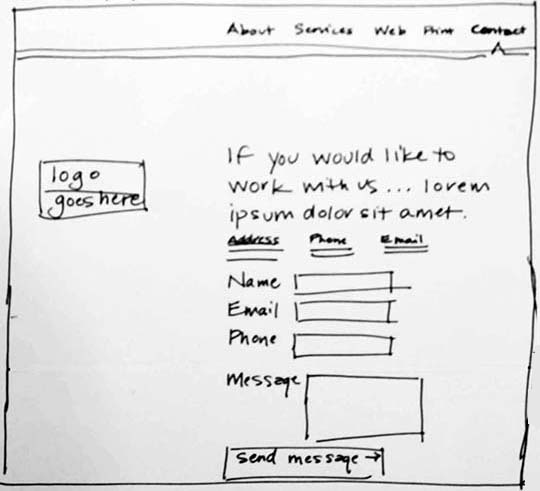 About Services Web Print Contact
logo
goes here
If you would like to
work with us... lorem
ipsum dolor sit amet.
Address Phone Email
Name
Email
Phone
Message
Send message →